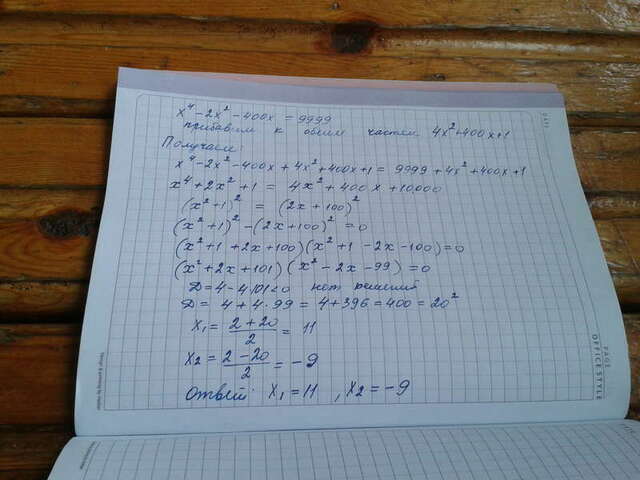 x⁴-2x²-400x = 9999
прибавим к обеим частям 4x²+400x+1
Получаем:
x⁴-2x²-400x+4x²+400x+1 = 9999+4x²+400x+1
x⁴+2x²+1 = 4x²+400x+10000
(x²+1)² = (2x+100)²
(x²+1)²-(2x+100)²=0
(x²+1+2x+100)(x²+1-2x-100)=0
(x²+2x+101)(x²-2x-99)=0
D=4-4·101<0 нет решений
D= 4+4·99 = 4+396=400=20²
x₁= (2+20)/2 = 11
x₂= (2-20)/2 = -9
Ответ: x₁=11, x₂=-9
DATE
PAGE
OFFICE STYLE